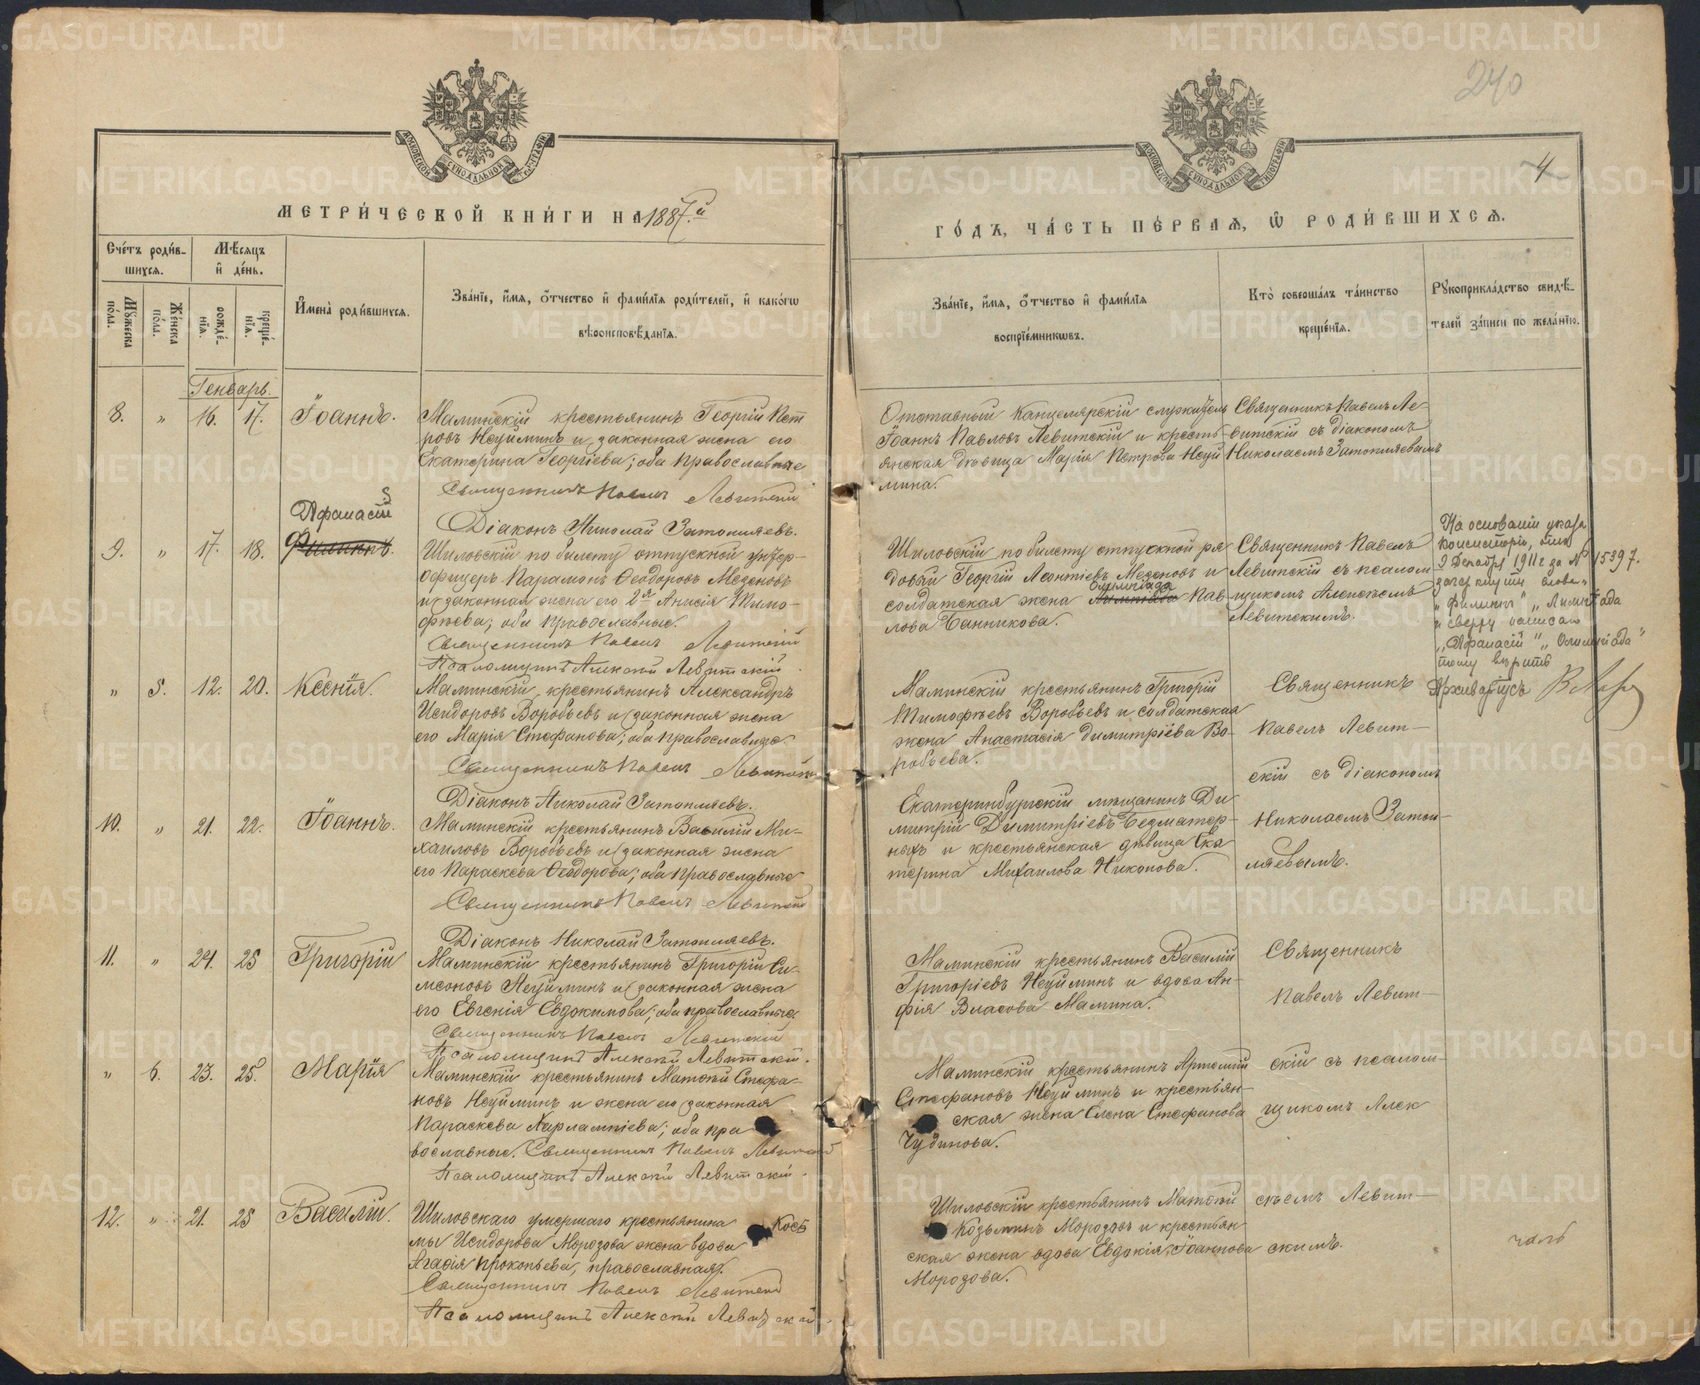 240
4
МОСКОВСКОЙ СѴНОДАЛЬНОЙ ТИПОГРАФІИ
МОСКОВСКОЙ СѴНОДАЛЬНОЙ ТИПОГРАФІИ
МЕТРИ́ЧЕСКОЙ КНИ́ГИ НА 1887.й
ГО́ДЪ, ЧА́СТЬ ПЕ́РВАѦ, Ѡ҆ РОДИ́ВШИХСѦ.
Сче́тъ роди́в-
шихсѧ.
Мѣ́сѧцъ
и҆ де́нь.
Мꙋ́жеска
по́ла.
Же́нска
по́ла.
рожде́-
нїѧ.
креще́-
нїѧ.
И҆мена̀ роди́вшихсѧ.
Зва́нїе, и҆́мѧ, ѻ҆́тчество и҆ фами́лїѧ роди́телей, и҆ како́гѡ
вѣроисповѣ́данїѧ.
Зва́нїе, и҆́мѧ, ѻ҆́тчество и҆ фами́лїѧ
воспрїе́мникѡвъ.
Кто̀ соверша́лъ та́инство
креще́нїѧ.
Рꙋкоприкла́дство свидѣ́-
телей за́писи по жела́нїю.
Генварь.
8. „ 16. 17. Іоаннъ.
Маминскій крестьянинъ Георгій Пет
ровъ Неуйминъ и законная жена его
Екатерина Георгіева; оба православные
Священникъ Павелъ Левитскій
Діаконъ Николай Затопляевъ.
Отставный канцелярскій служитель
Іоаннъ Павловъ Левитскій и кресть-
янская дѣвица Марія Петрова Неуй
мина.
Священникъ Павелъ Ле-
витскій съ діакономъ
Николаемъ Затопляевымъ
Афанасій
9. „ 17. 18. Филиппъ.
Шиловскій по билету отпускной унтер-
офицеръ Парамонъ Ѳеодоровъ Мезеновъ
и законная жена его 2я Анисія Тимо-
фѣева; оба православные.
Священникъ Павелъ Левитскій
Псаломщикъ Алексѣй Левитскій.
Шиловскій по билету отпускной ря
довый Георгій Леонтіевъ Мезеновъ и
Олимпіада
солдатская жена Лимпіада Пав-
лова Банникова.
Священникъ Павелъ
Левитскій съ псалом
щикомъ Алексѣемъ
Левитскимъ.
На основаніи указа
консисторіи, отъ
9 Декабря 1911 г за № 15397.
зачеркнутыя слова
„Филиппъ“ „Лимпіада
и сверху написано
„Афанасій“ „Олимпіада“
тому вѣрить
Архиваріусъ
„ 5. 12. 20. Ксенія.
Маминскій крестьянинъ Александръ
Исидоровъ Воробьевъ и законная жена
его Марія Стефанова; оба православные.
Священникъ Павелъ Левитскій
Діаконъ Николай Затопляевъ.
Маминскій крестьянинъ Григорій
Тимофѣевъ Воробьевъ и солдатская
жена Анастасія Димитріева Во-
робьева.
Священникъ
Павелъ Левит-
скій съ діакономъ
Николаемъ Затоп-
ляевымъ.
10. „ 21. 22. Іоаннъ.
Маминскій крестьянинъ Василій Ми-
хаиловъ Воробьевъ и законная жена
его Параскева Ѳеодорова; оба православные
Священникъ Павелъ Левитскій
Діаконъ Николай Затопляевъ.
Екатеринбургскій мѣщанинъ Ди
митрій Димитріевъ Безматер-
ныхъ и крестьянская дѣвица Ека
терина Михаилова Никонова.
11. „ 24. 25 Григорій
Маминскій крестьянинъ Григорій Си-
меоновъ Неуйминъ и законная жена
его Евгенія Евдокимова; оба православные
Священникъ Павелъ Левитскій
Псаломщикъ Алексѣй Левитскій.
Маминскій крестьянинъ Василій
Григоріевъ Неуйминъ и вдова Ан-
фія Власова Мамина.
Священникъ
Павелъ Левит-
скій съ псалом-
щикомъ Алек
сѣемъ Левит-
скимъ.
„ 6. 23. 25. Марія
Маминскій крестьянинъ Матѳей Стефа-
новъ Неуйминъ и жена его законная
Параскева Харлампіева; оба пра
вославные. Священникъ Павелъ Левитскій
Псаломщикъ Алексѣй Левитскій.
Маминскій крестьянинъ Артемій
Стефановъ Неуйминъ и крестьян-
ская жена Елена Стефанова
Чудинова.
12. „ 21. 25 Василій.
Шиловскаго умершаго крестьянина Козь
мы Исидорова Морозова жена вдова
Агафія Прокопьева, православная.
Священникъ Павелъ Левитскій
Псаломщикъ Алексѣй Левитскій.
Шиловскій крестьянинъ Матѳей
Козьминъ Морозовъ и крестьян
ская жена вдова Евдокія Іоаннова
Морозова.
METRIKI.GASO-URAL.RU